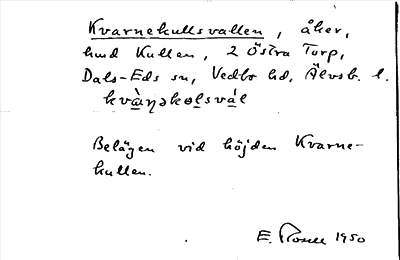 Kvarnekullsvallen, åker,
hmd Kullen, 2 Östra Torp,
Dals-Eds sn, Vedbo hd, Älvsb. l.
Belägen vid höjden Kvarne-
kullen.
E. Rosell 1950